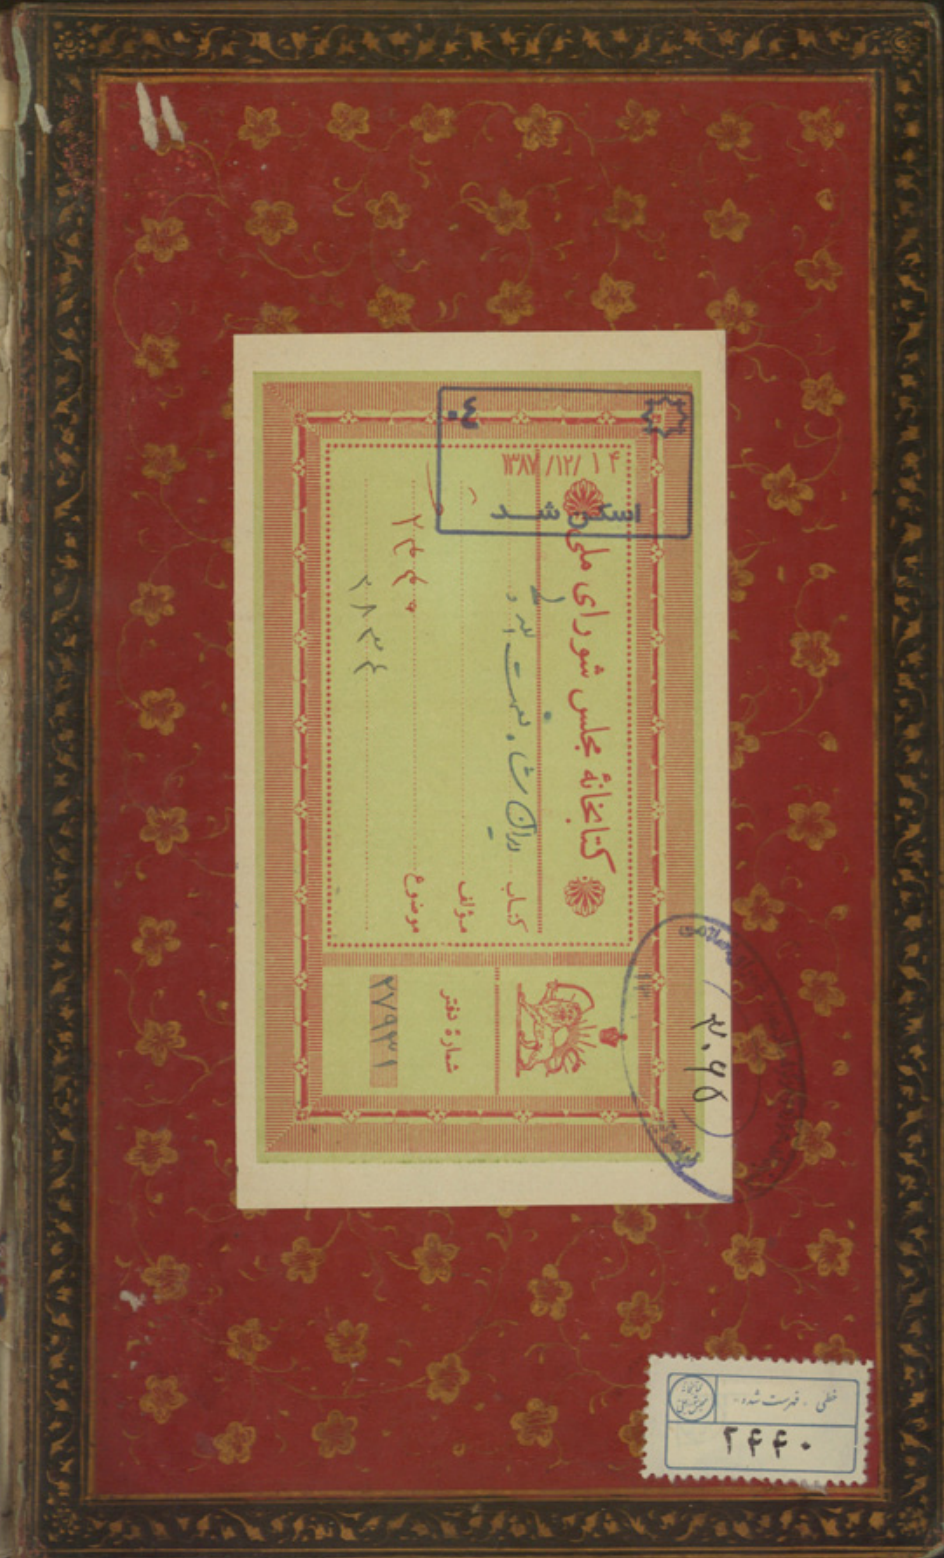 ۱۳۸۷/۱۲/۱۴
اسکن شد
کتابخانهٔ مجلس شورای ملی
کتاب دیوان شاه نعمت الله ولی
مؤلف
موضوع ۲۴۴۰
۲۸۳۴
شمارهٔ دفتر
۲۷۹۳۱
۲۰۹۵
خطی - فهرست شده -
۲۴۴۰